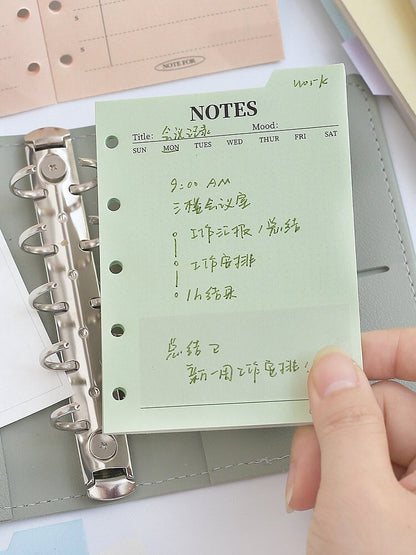 NOTE FOR
work
NOTES
Title: 会议记录 Mood:
SUN MON TUES WED THUR FRI SAT
9:00 AM
三楼会议室
工作汇报/总结
工作安排
1h结束
总结
新一周工作安排